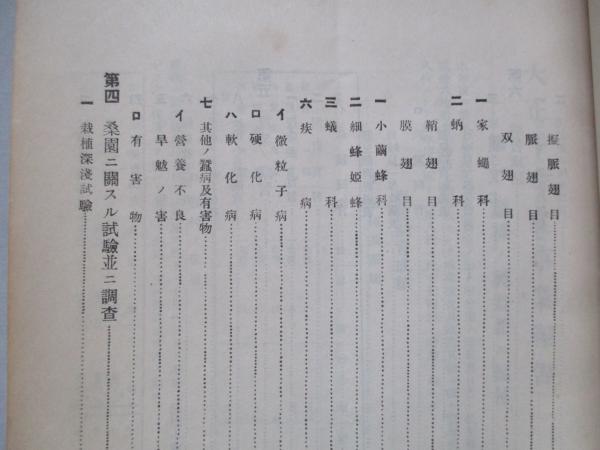 擬脈翅目
脈翅目
双翅目
一 家蠅科
二 蚋科
鞘翅目
膜翅目
一 小繭蜂科
二 細蜂姬蜂
三 蟻科
六 疾病
イ 微粒子病
ロ 硬化病
ハ 軟化病
七 其他ノ蠶病及有害物
イ 營養不良
旱魃ノ害
ロ 有害物
第四 桑園ニ關スル試驗並ニ調查
一 栽植深淺試驗